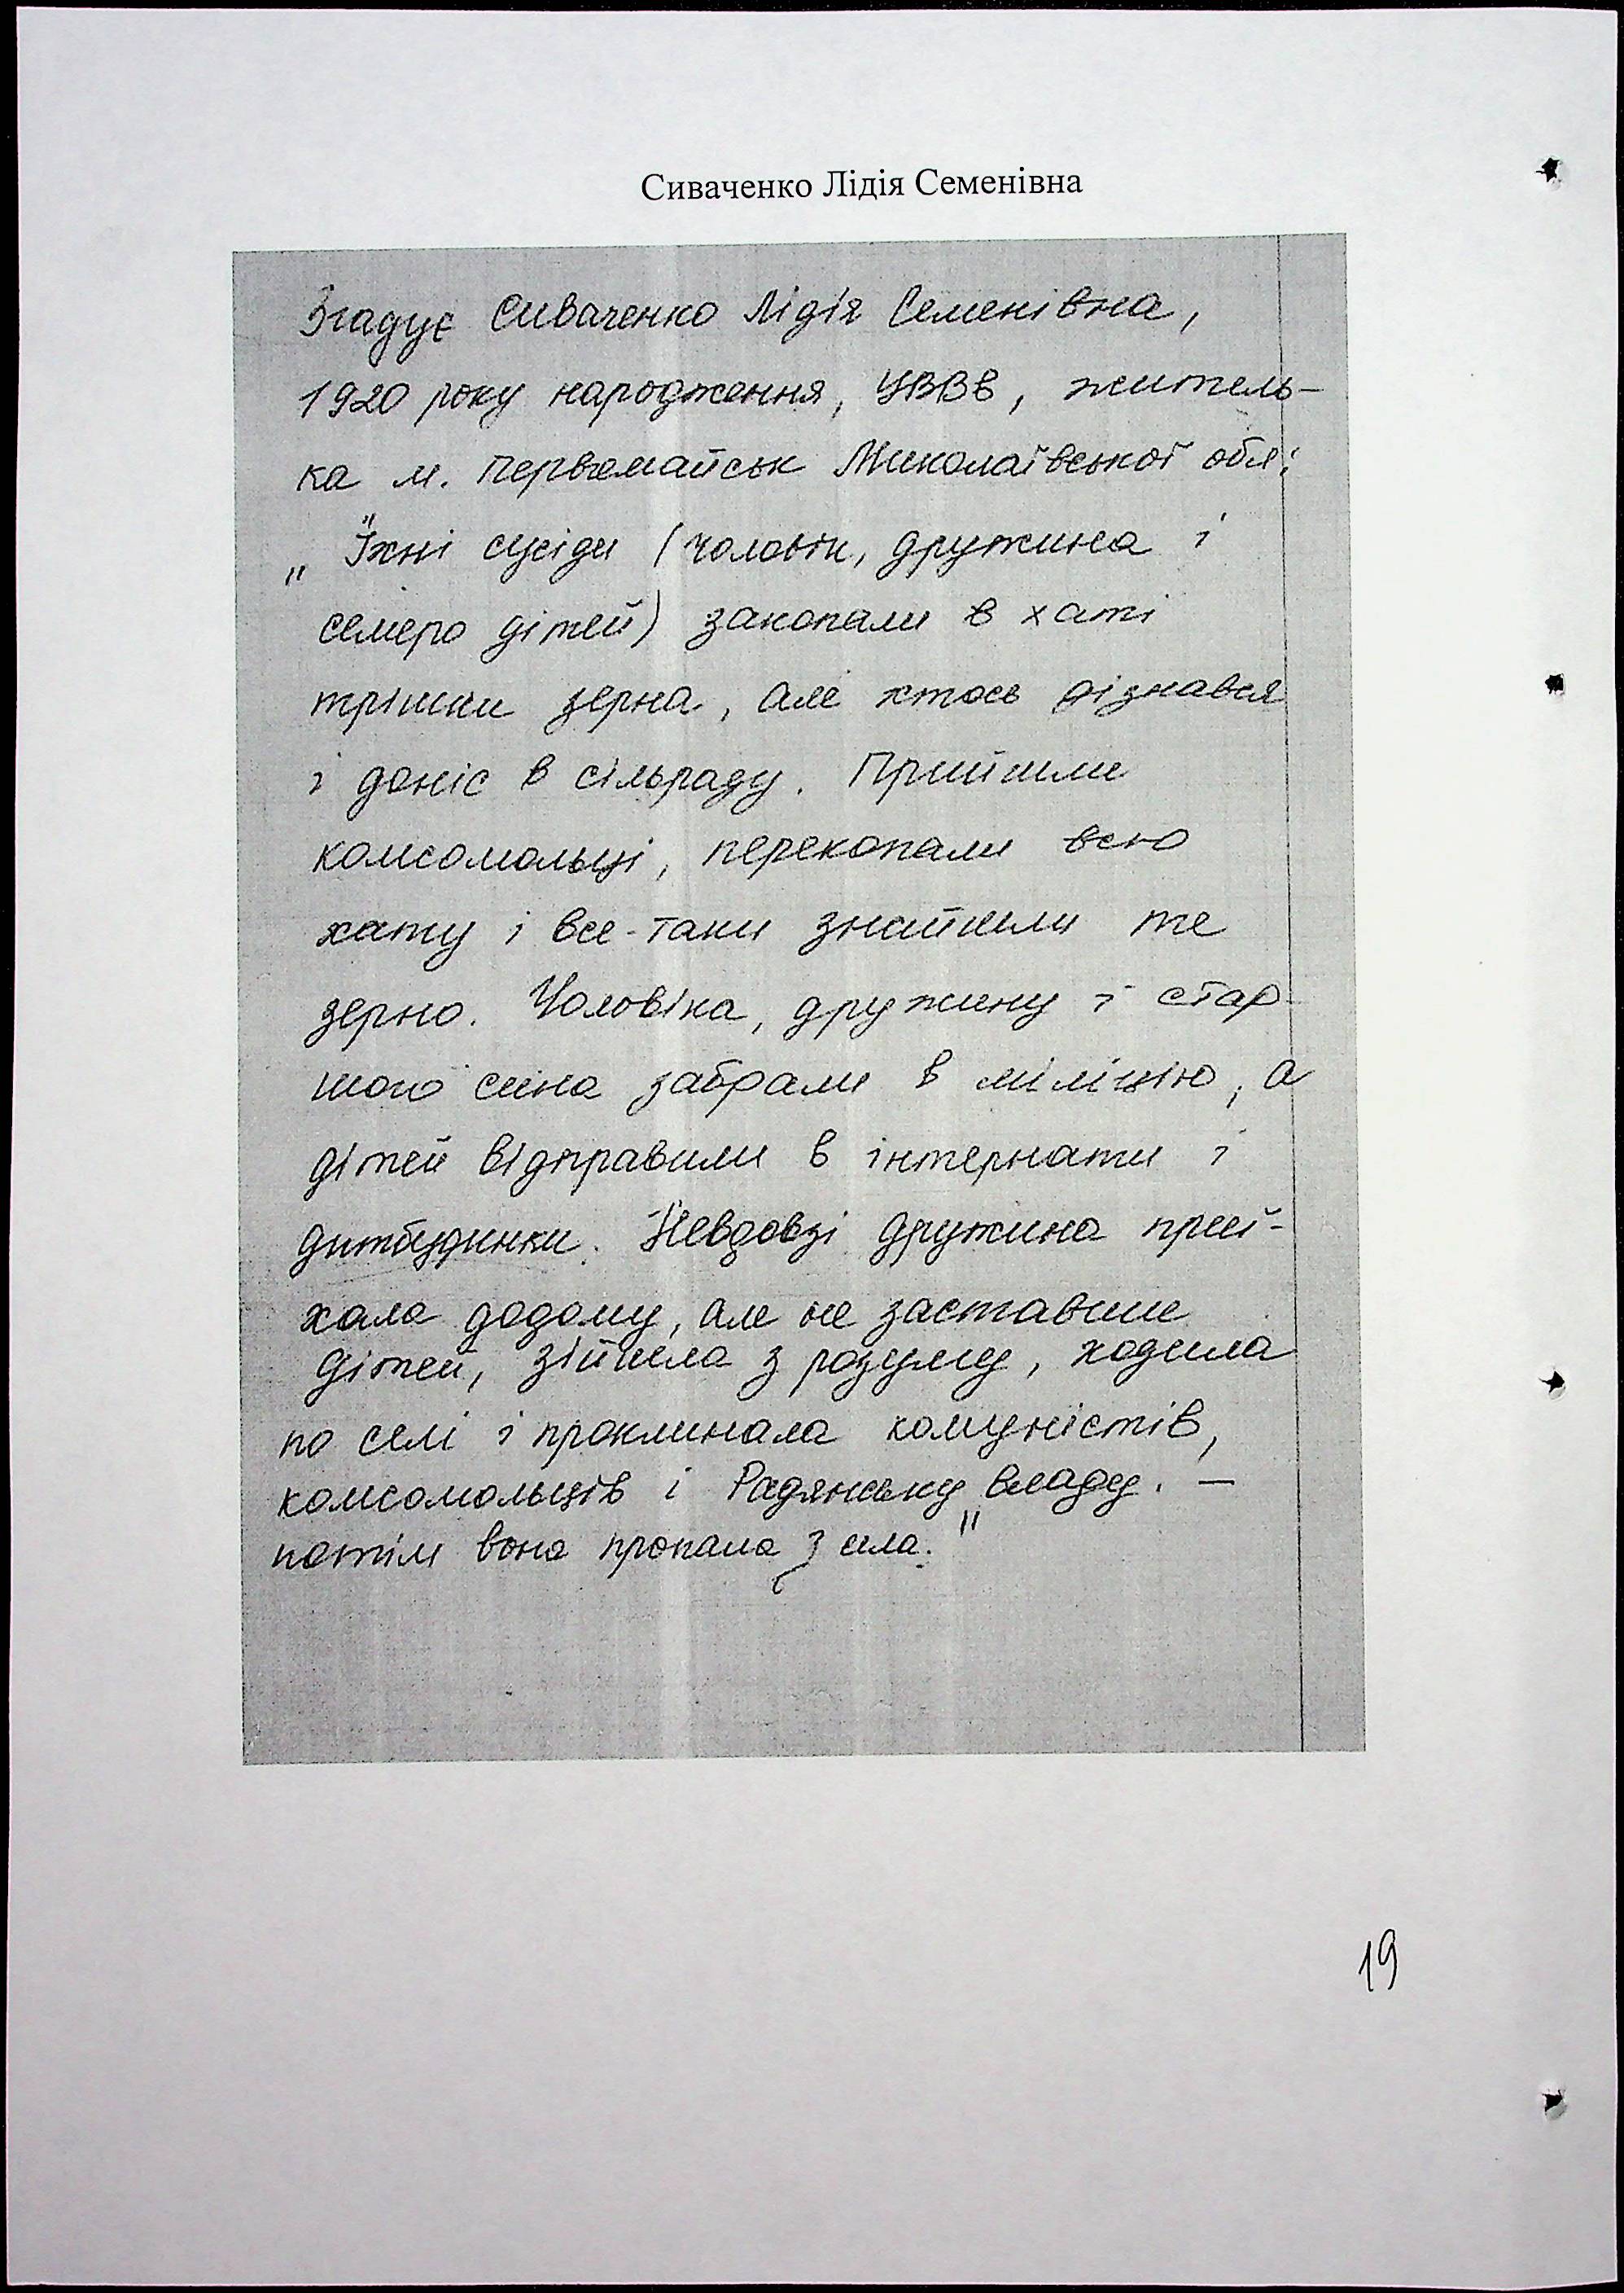 Сиваченко Лідія Семенівна
Згадує Сиваченко Лідія Семенівна,
1920 року народження, УВВв, житель-
ка м. Первомайськ Миколаївської обл:
„Їхні сусіди (чоловік, дружина і
семеро дітей) закопали в хаті
трішки зерна, але хтось дізнався
і доніс в сільраду. Прийшли
комсомольці, перекопали всю
хату і все-таки знайшли те
зерно. Чоловіка, дружину і стар-
шого сина забрали в міліцію, а
дітей відправили в інтернати і
дитбудинки. Невдовзі дружина приї-
хала додому, але не заставши
дітей, зійшла з розуму, ходила
по селі і проклинала комуністів,
комсомольців і Радянську владу. –
потім вона пропала з села."
19